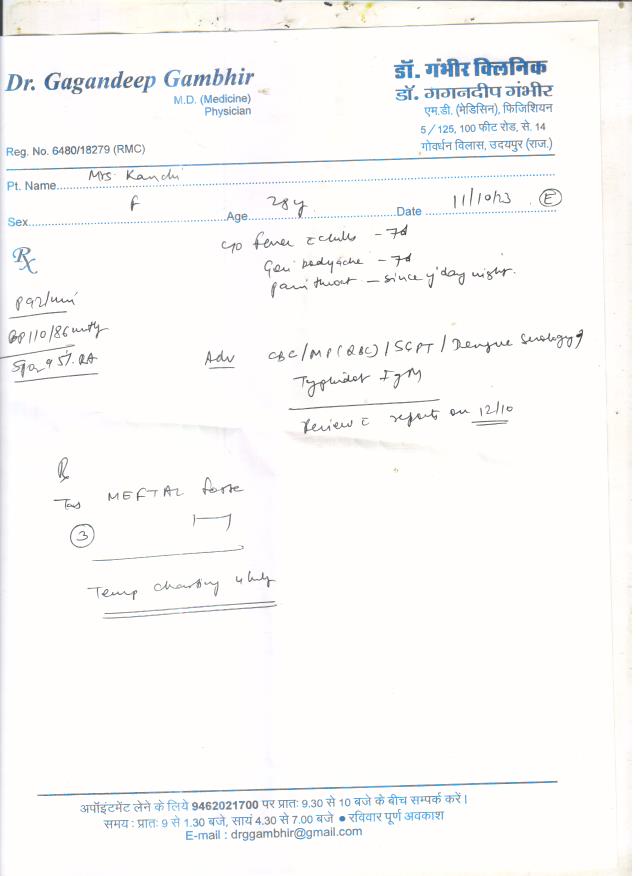 Dr. Gagandeep Gambhir
M.D. (Medicine)
Physician
Reg. No. 6480/18279 (RMC)
डॉ. गंभीर क्लिनिक
डॉ. गगनदीप गंभीर
एम.डी. (मेडिसिन), फिजिशियन
5 / 125, 100 फीट रोड, से. 14
गोवर्धन विलास, उदयपुर (राज.)
Pt. Name Mrs Kanchi
Sex F Age 28y Date 11/10/23 E
Rx
c/o fever c chills - 7d
Gen bodyache - 7d
Pain throat - since y'day night.
P 92/min
BP 110/86 mmHg
SpO2 95% RA
Adv CBC / MP (QBC) / SGPT / Dengue Serology
Typhidot IgM
Review c reports on 12/10
Rx
Tab MEFTAL forte
3
Temp charting 4 hrly
अपॉइंटमेंट लेने के लिये 9462021700 पर प्रातः 9.30 से 10 बजे के बीच सम्पर्क करें।
समय : प्रातः 9 से 1.30 बजे, सायं 4.30 से 7.00 बजे ● रविवार पूर्ण अवकाश
E-mail : drggambhir@gmail.com